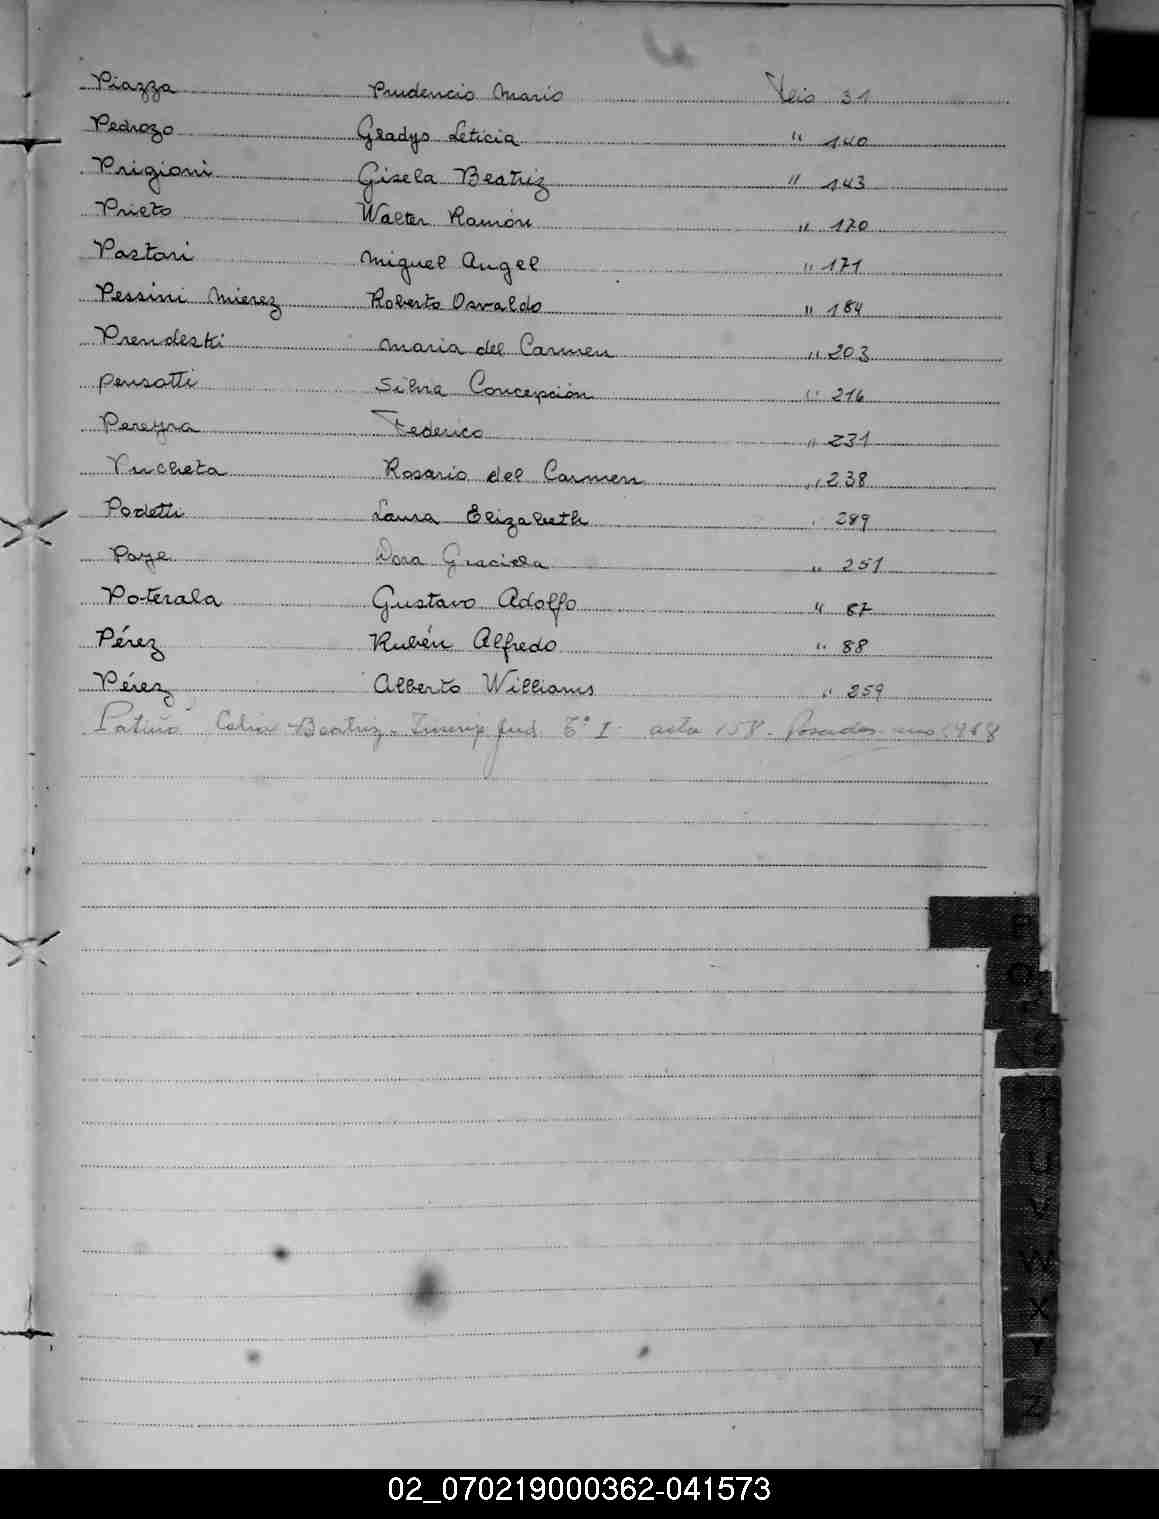 Piazza Prudencio Mario Folio 31
Pedrozo Gladys Leticia " 140
Prigioni Gisela Beatriz " 143
Prieto Walter Ramón " 170
Pastori Miguel Angel " 171
Pessini Mierez Roberto Osvaldo " 184
Prendeski Maria del Carmen " 203
Pensotti Silvia Concepción " 216
Pereyra Federico " 231
Rosario del Carmen " 238
Podetti Laura Elizabeth " 289
Paye Dora Graciela " 251
Poterala Gustavo Adolfo " 87
Pérez Rubén Alfredo " 88
Pérez Alberto Williams " 259
Patiño Celia Beatriz. Inscrip. Jud. T° I acta 158. Posadas 1968
P
O
U
V
W
X
Y
Z
02_070219000362-041573